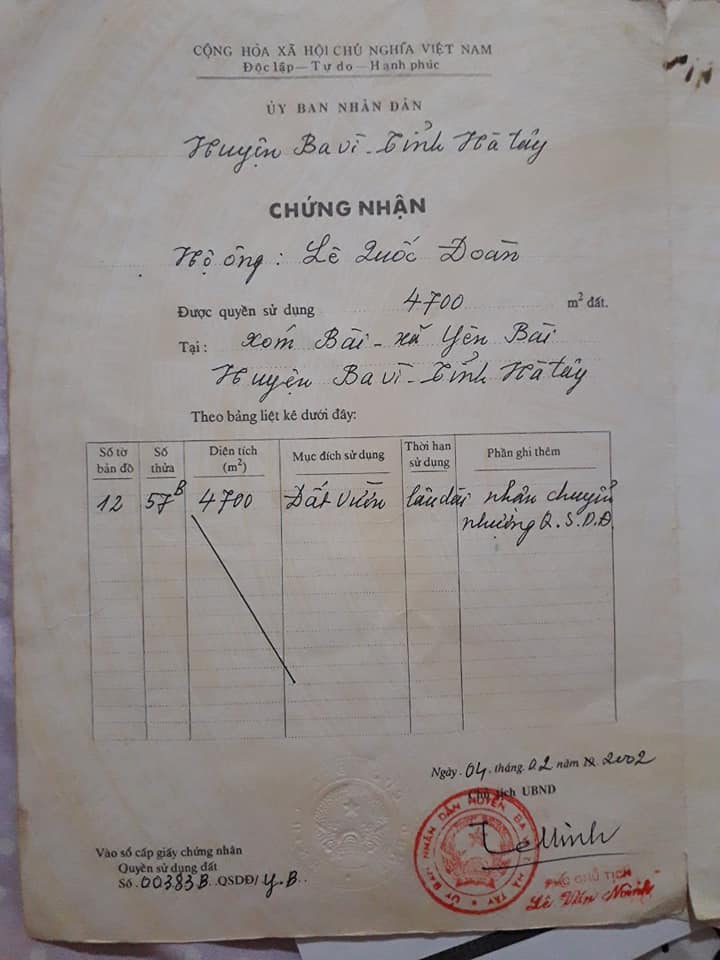 CỘNG HÒA XÃ HỘI CHỦ NGHĨA VIỆT NAM
Độc lập — Tự do — Hạnh phúc
ỦY BAN NHÂN DÂN
Huyện Ba vì - Tỉnh Hà tây
CHỨNG NHẬN
Hộ ông : Lê Quốc Đoàn
Được quyền sử dụng 4700 m² đất.
Tại : xóm Bài - xã Yên Bài
Huyện Ba vì - Tỉnh Hà tây
Theo bảng liệt kê dưới đây:
Số tờ bản đồ Số thửa Diện tích (m²) Mục đích sử dụng Thời hạn sử dụng Phần ghi thêm
12 57B 4700 Đất vườn lâu dài nhận chuyển
nhượng Q.S.D.Đ
Ngày 04 tháng 02 năm 2002
Chủ tịch UBND
ỦY BAN NHÂN DÂN HUYỆN BA VÌ HÀ TÂY
PHÓ CHỦ TỊCH
Lê Văn
Vào sổ cấp giấy chứng nhân
Quyền sử dụng đất
Số 00383B QSDĐ/ Y.B